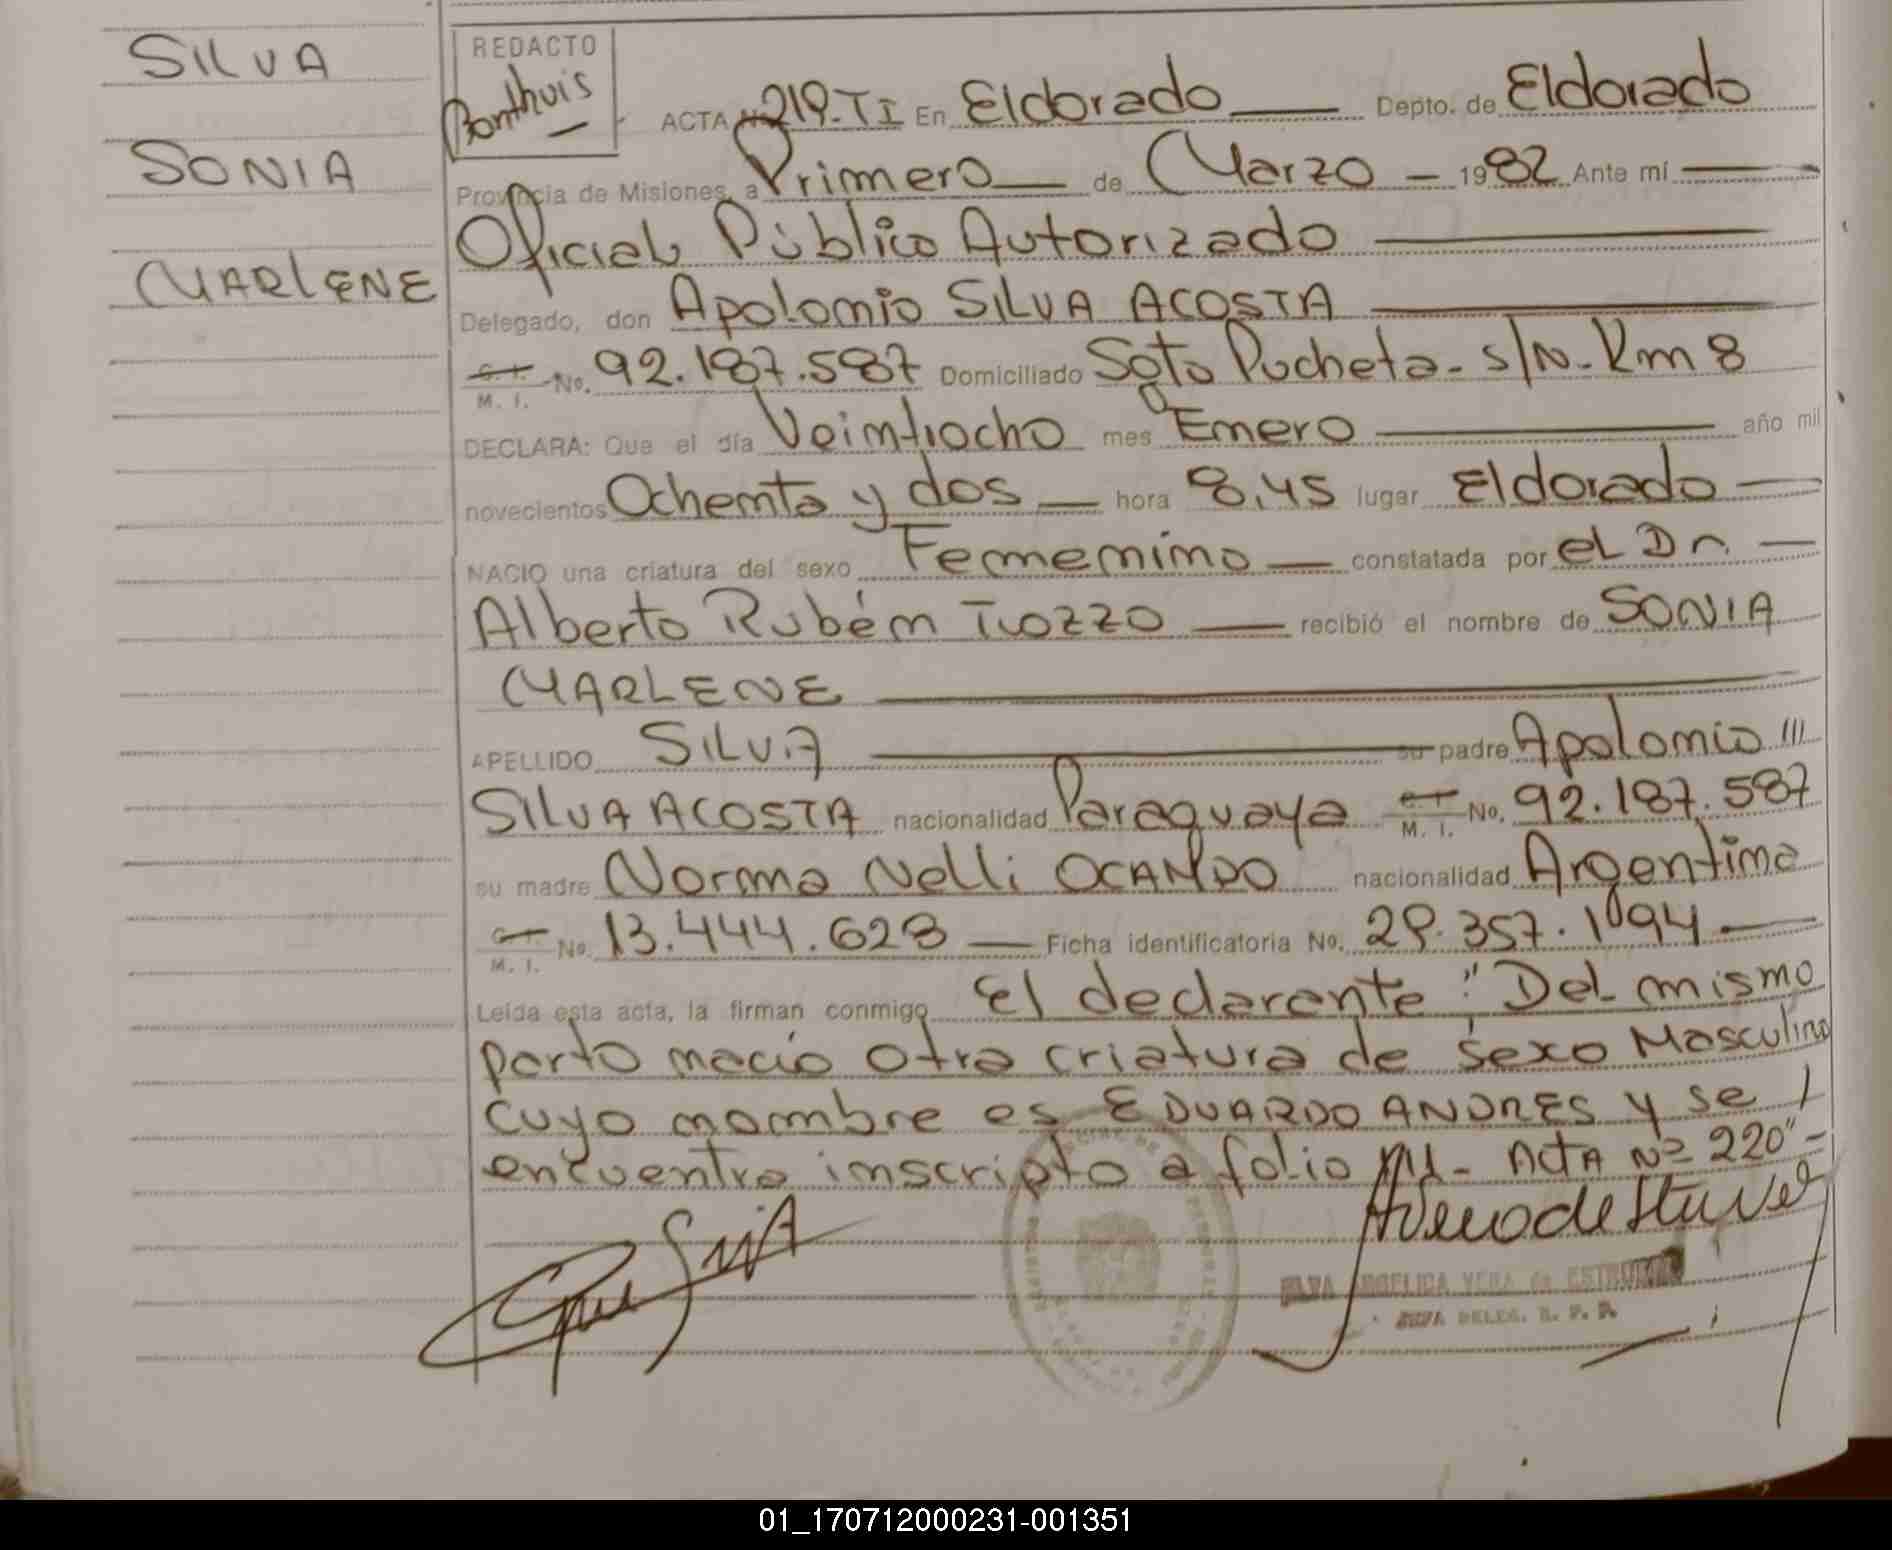 SILVA
SONIA
MARLENE
REDACTO
Bonthuis
ACTA Nº 219-TI En Eldorado Depto. de Eldorado
Provincia de Misiones, a Primero de Marzo - 1982 Ante mí
Oficial Público Autorizado
Delegado, don Apolonio SILVA ACOSTA
C. I. M. I. No. 92.187.587 Domiciliado Soto Pucheta - s/N - Km 8
DECLARA: Que el día Veintiocho mes Enero año mil
novecientos Ochenta y dos hora 8,45 lugar Eldorado
NACIO una criatura del sexo Femenino constatada por el Dr.
Alberto Rubén Tiozzo recibió el nombre de SONIA
MARLENE
APELLIDO SILVA su padre Apolonio
SILVA ACOSTA nacionalidad Paraguaya C. I. M. I. No. 92.187.587
su madre Norma Nelli OCAMPO nacionalidad Argentina
C. I. M. I. No. 13.444.628 Ficha identificatoria No. 29.357.194
Leída esta acta, la firman conmigo El declarante: "Del mismo
parto nació otra criatura de sexo Masculino
cuyo nombre es EDUARDO ANDRES y se
encuentra inscripto a folio - ACTA Nº 220"
ANGELICA VERA de
JEFA DELEG. R. P. P.
01_170712000231-001351